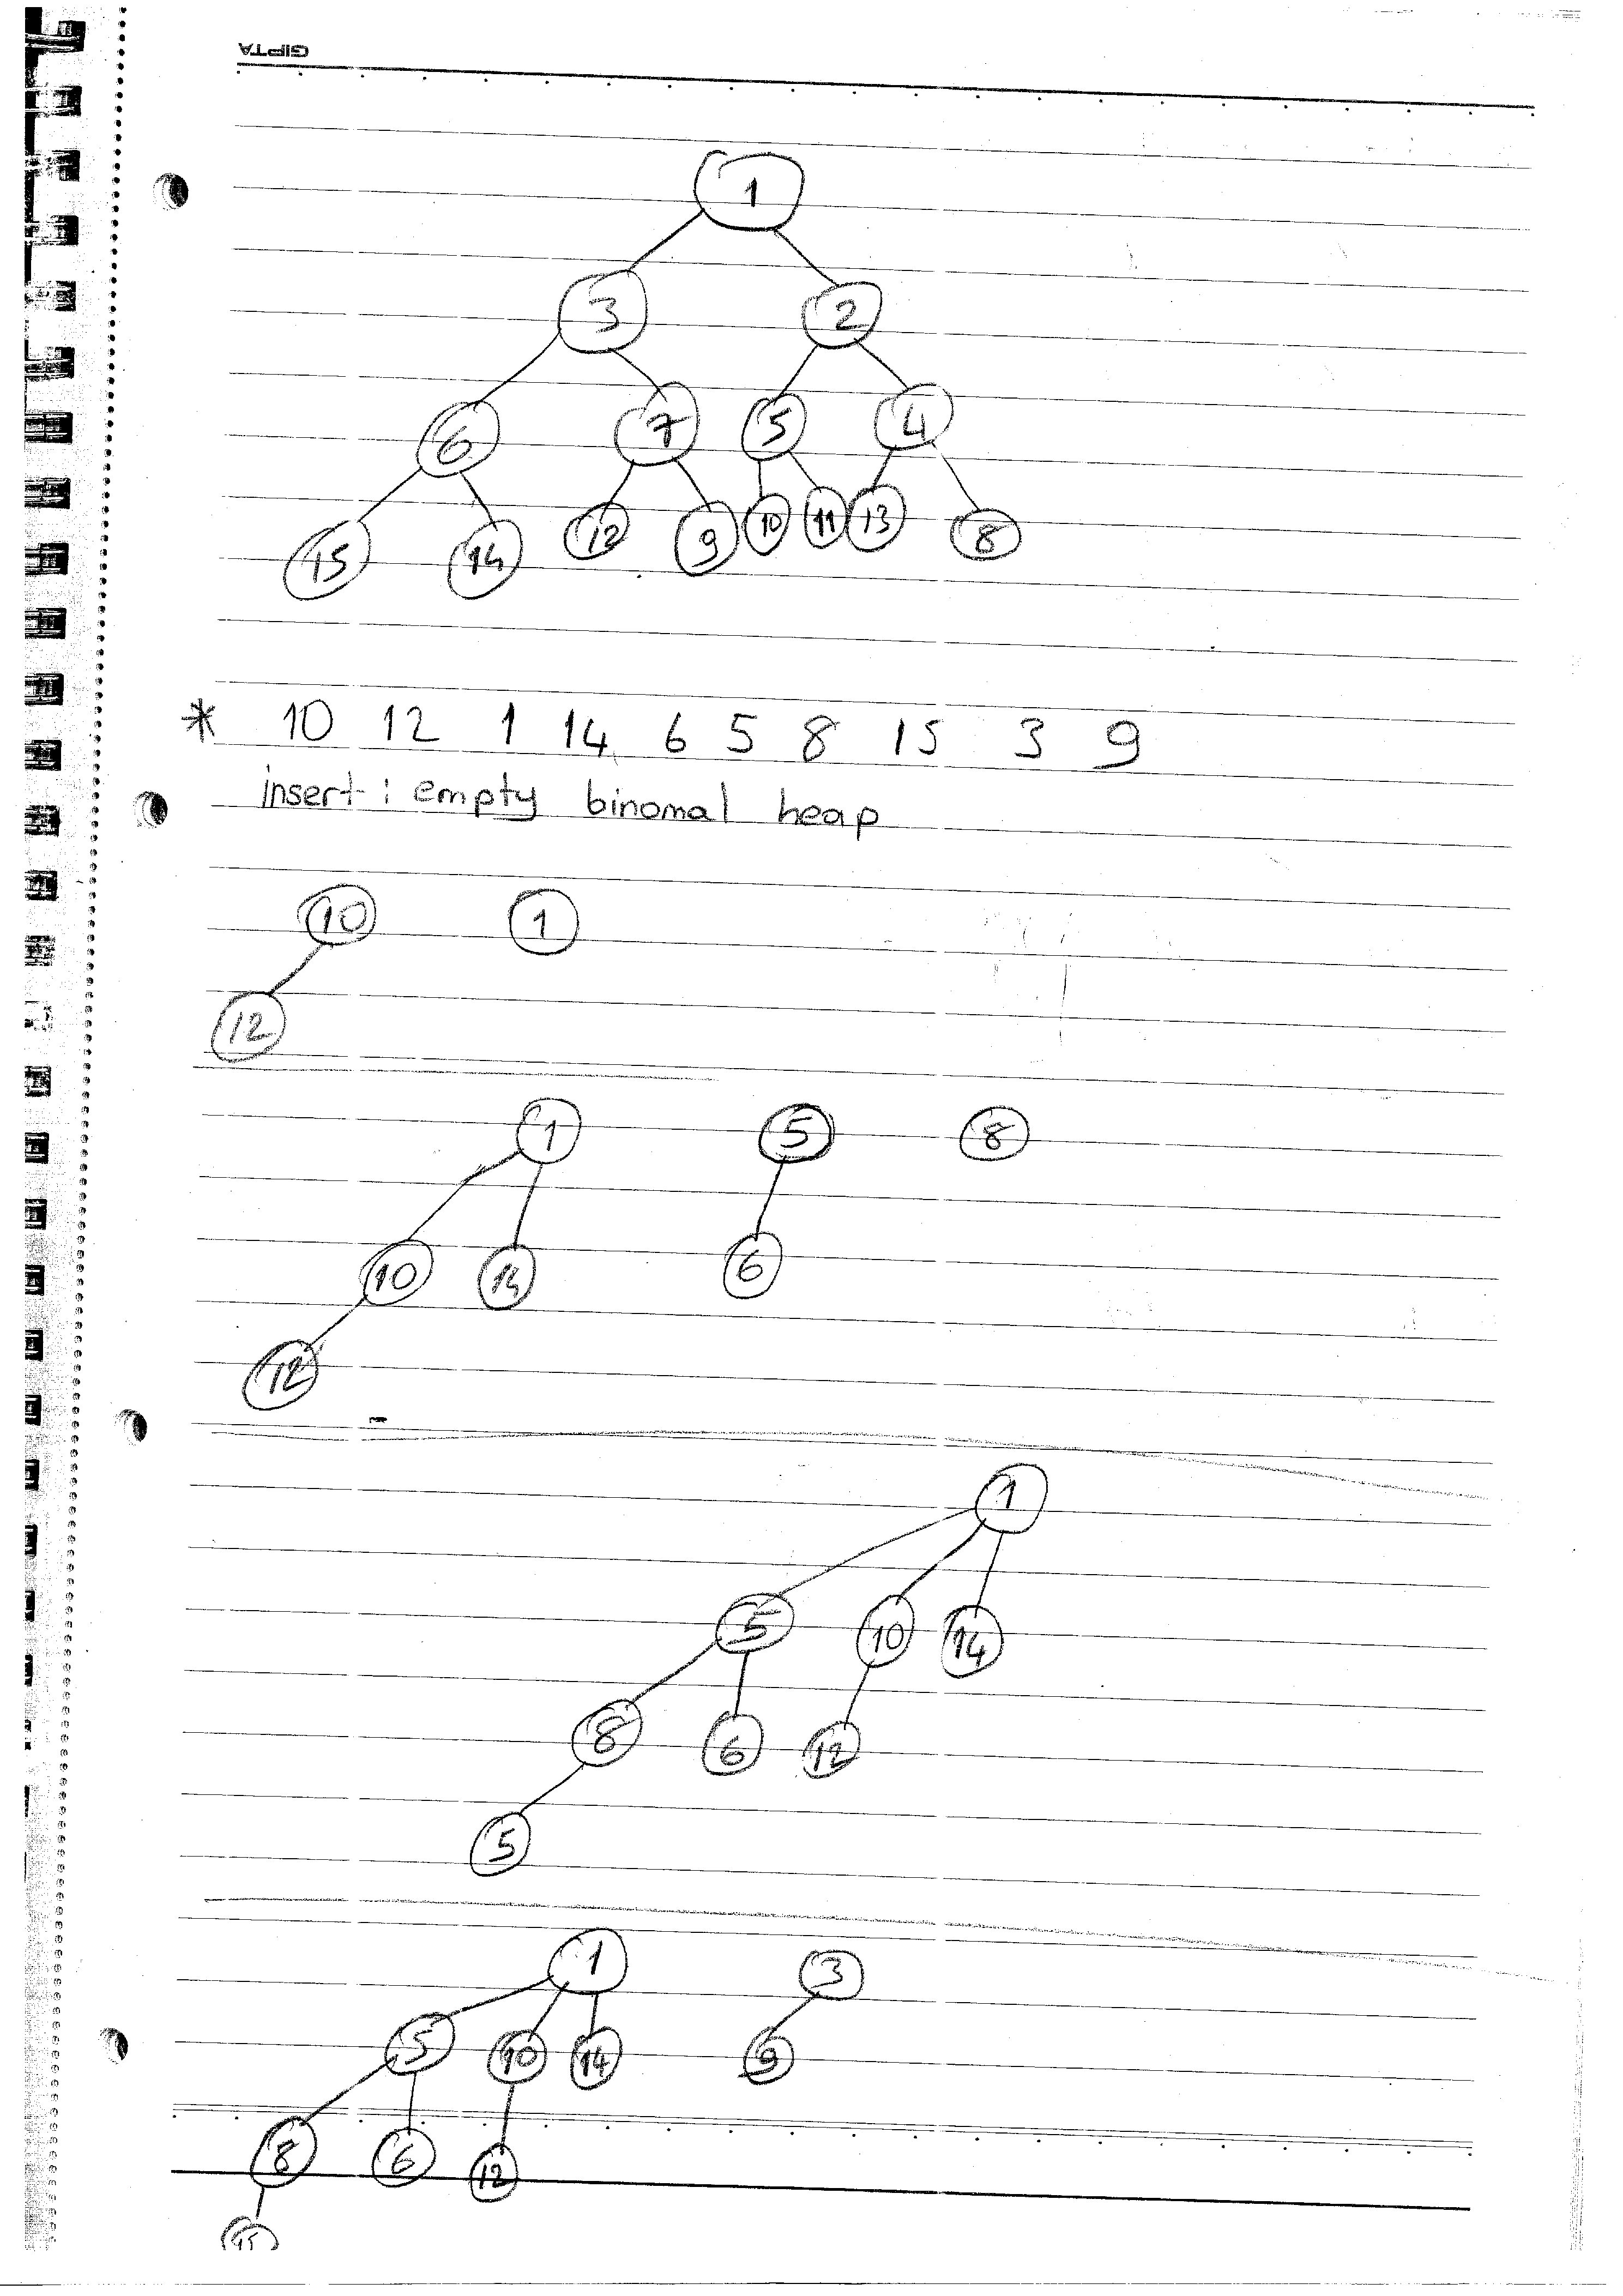 GIPTA
1
3 2
6 7 5 4
15 14 12 9 10 11 13 8
* 10 12 1 14 6 5 8 15 3 9
insert : empty binomal heap
10 1
12
1 5 8
10 14 6
12
1
5 10 14
8 6 12
5
1 3
5 10 14 9
8 6 12
15